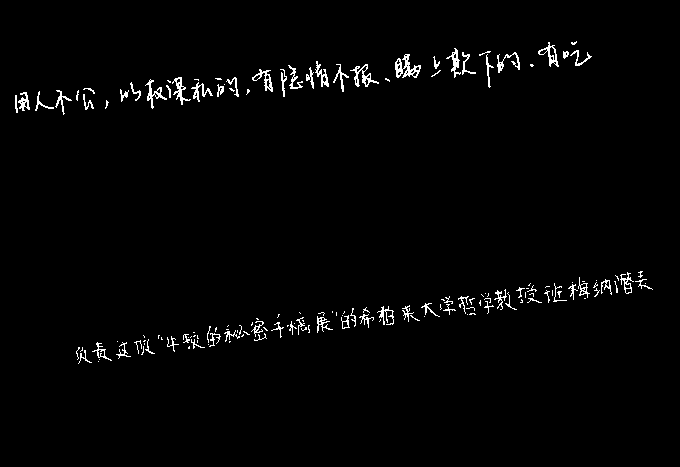 用人不公，以权谋私的，有隐情不报、瞒上欺下的、有吃
负责这项“牛顿的秘密手稿展”的希伯来大学哲学教授班梅纳潜表